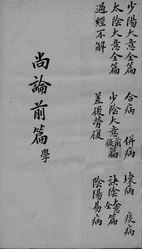 少陽大意全篇 合病 併病 壞病 痰病
太陰大意全篇 少陰大意前篇後篇 厥陰全篇
過經不解 差後勞復 陰陽易病
尚論前篇
學